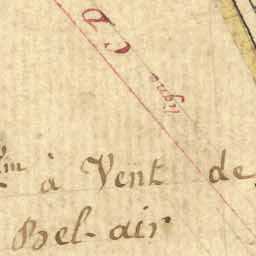 C D
ligne
m à Vent de
Bel-air